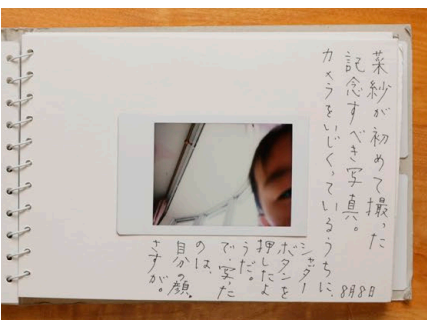 菜紗が初めて撮った
記念すべき写真。
カメラをいじくっているうちに、
シャッター
ボタンを
押したよ
うだ。
で、写った
のは、
自分の顔。
さすが。
8月8日